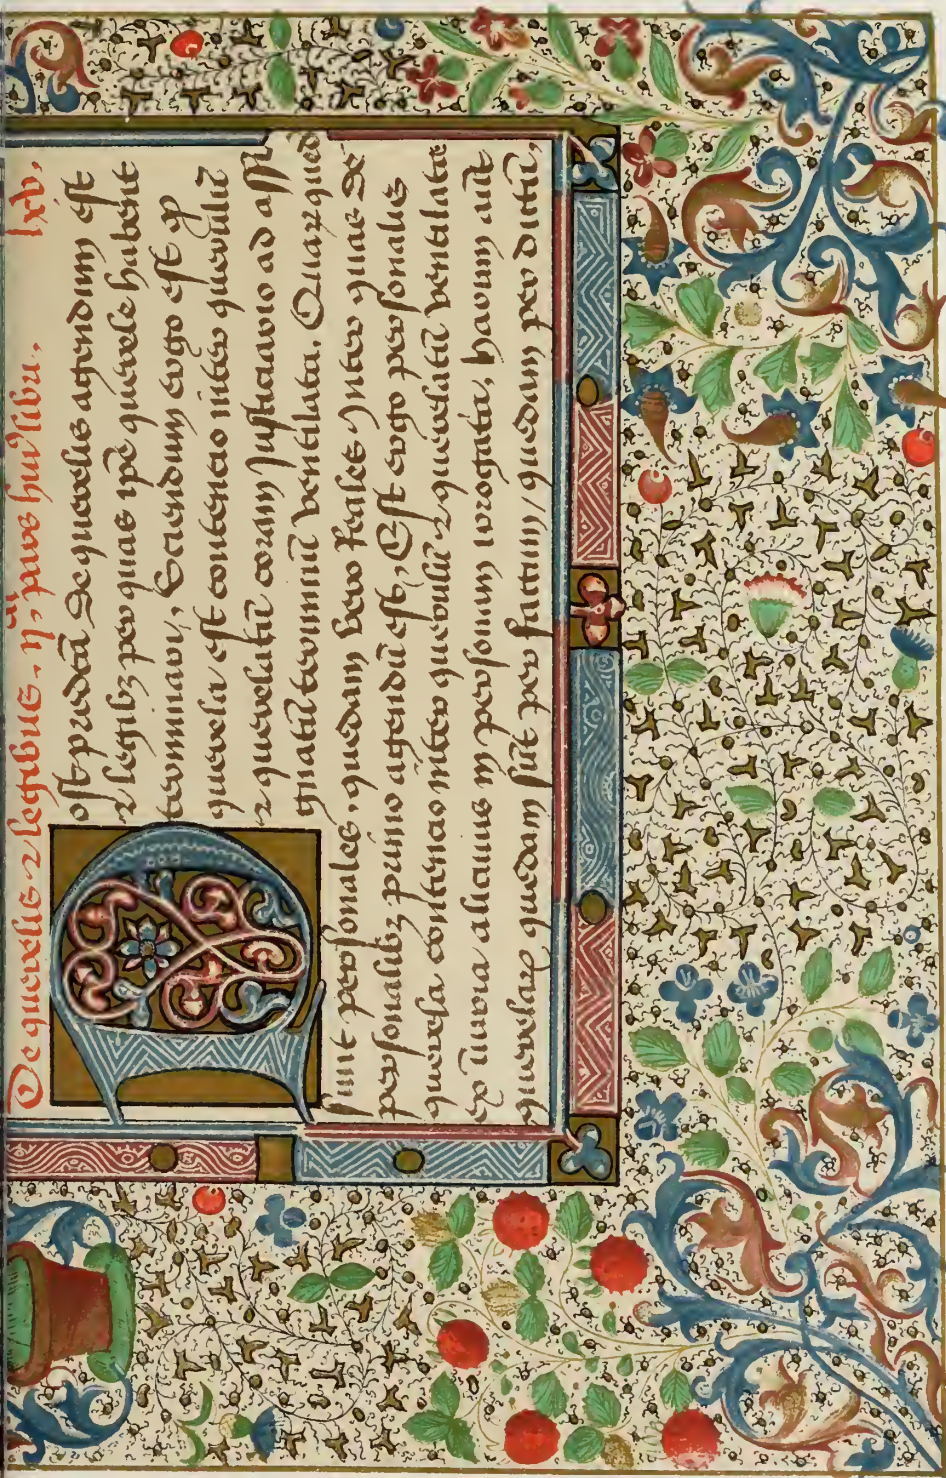 De querelis ⁊ legibus. ii^a pars huiꝰ libri. lxv.
Post predcā de querelis agendum est
⁊ legibꝫ per quas ipē querele habent
terminari, Sciendum ergo est ꝙ
querela est contencio inter querulū
⁊ querelatū coram Justiciario ad assi
gnatū terminū ventilata. Quarꝝ qued
sunt personales, quedam vero Reales Inter quas de
personalibꝫ primo agendū est, Est ergo personalis
querela contencio inter querulū ⁊ querelatū ventilata
ex iniuria alicuius in personam irrogata, harum aūt
querelarꝝ quedam sūt per factum, quedam per dictū,